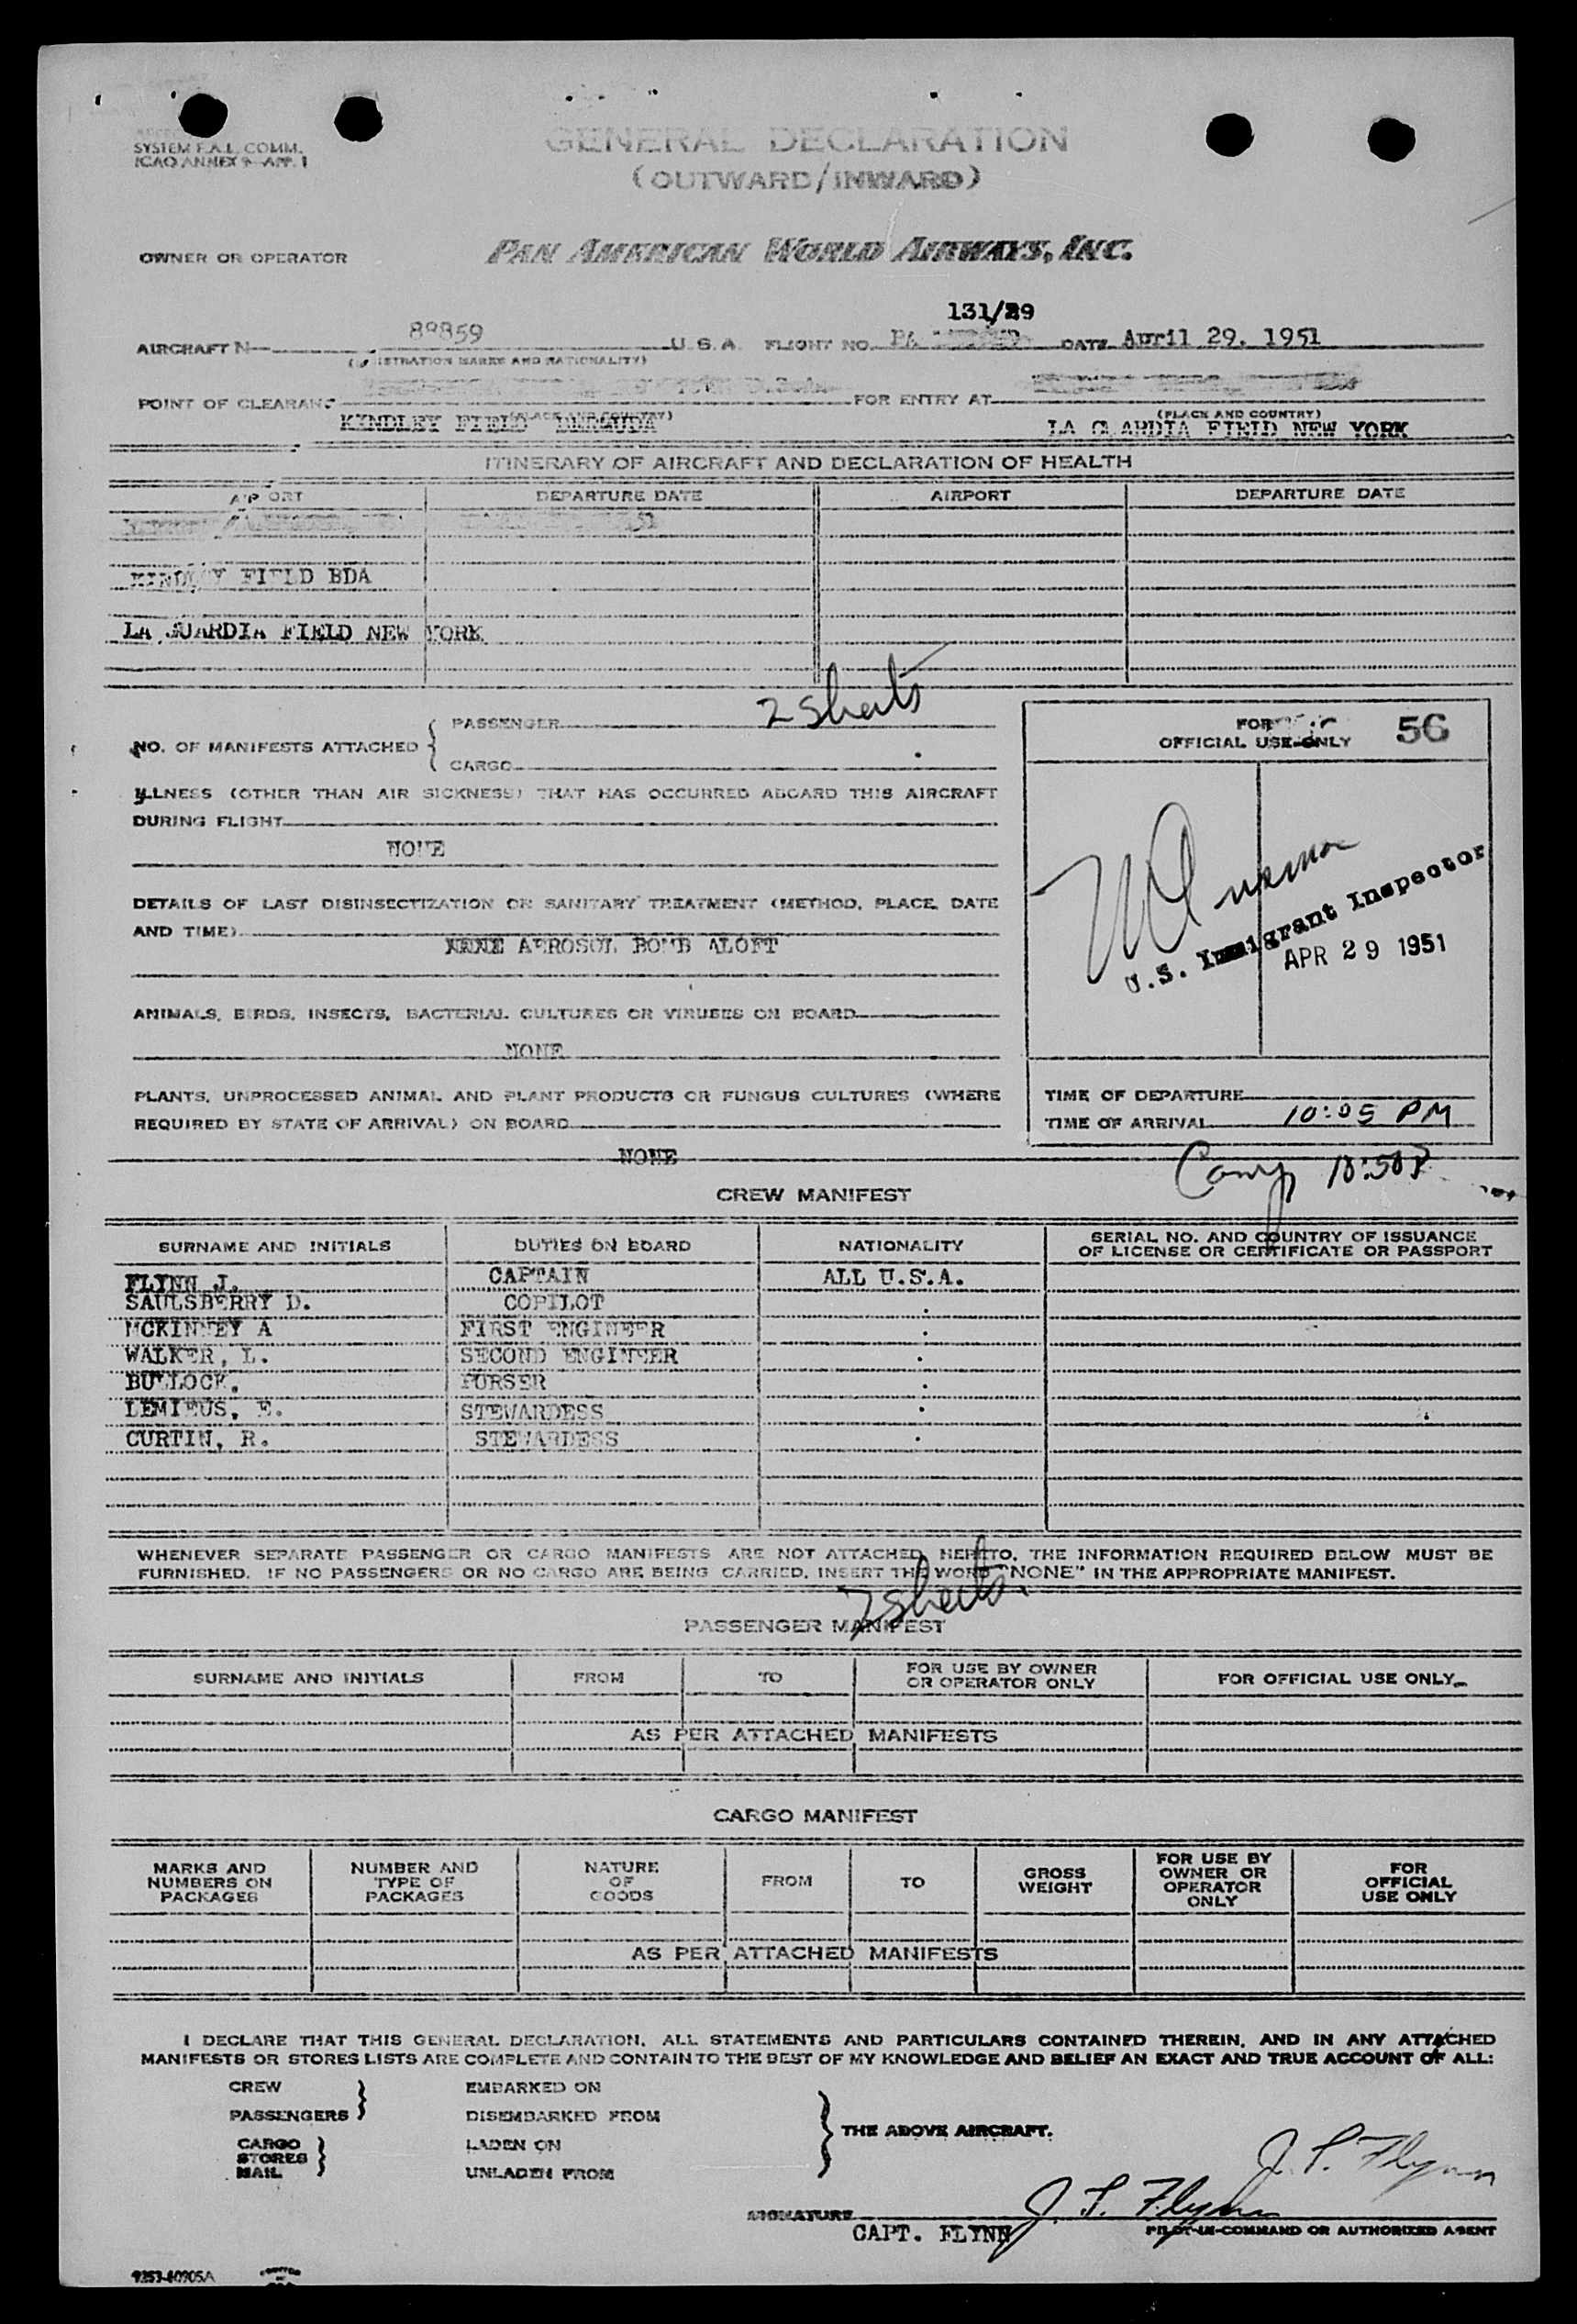 SYSTEM F.A.L. COMM.
ICAO ANNEX 9 APP. 1
GENERAL DECLARATION
(OUTWARD/INWARD)
OWNER OR OPERATOR
PAN AMERICAN WORLD AIRWAYS, INC.
131/29
AIRCRAFT N 88859 U.S.A. FLIGHT NO. PA DATE April 29, 1951
POINT OF CLEARANC FOR ENTRY AT
(PLACE AND COUNTRY) (PLACE AND COUNTRY)
KINDLEY FIELD BERMUDA LA GUARDIA FIELD NEW YORK
ITINERARY OF AIRCRAFT AND DECLARATION OF HEALTH
AIRPORT DEPARTURE DATE AIRPORT DEPARTURE DATE
KINDLEY FIELD BDA
LA GUARDIA FIELD NEW YORK
NO. OF MANIFESTS ATTACHED
PASSENGER 2 sheets
CARGO
ILLNESS (OTHER THAN AIR SICKNESS) THAT HAS OCCURRED ABOARD THIS AIRCRAFT
DURING FLIGHT
NONE
DETAILS OF LAST DISINSECTIZATION OR SANITARY TREATMENT (METHOD, PLACE, DATE
AND TIME)
AEROSOL BOMB ALOFT
ANIMALS, BIRDS, INSECTS, BACTERIAL CULTURES OR VIRUSES ON BOARD
NONE
PLANTS, UNPROCESSED ANIMAL AND PLANT PRODUCTS OR FUNGUS CULTURES (WHERE
REQUIRED BY STATE OF ARRIVAL) ON BOARD
NONE
FOR
OFFICIAL USE ONLY
56
U.S. Immigrant Inspector
APR 29 1951
TIME OF DEPARTURE
TIME OF ARRIVAL 10:05 PM
Comp 10:50P
CREW MANIFEST
SURNAME AND INITIALS DUTIES ON BOARD NATIONALITY SERIAL NO. AND COUNTRY OF ISSUANCE
OF LICENSE OR CERTIFICATE OR PASSPORT
FLYNN J. CAPTAIN ALL U.S.A.
SAULSBERRY D. COPILOT
MCKINNEY A FIRST ENGINEER
WALKER, L. SECOND ENGINEER
BULLOCK, PURSER
LEMIEUS, E. STEWARDESS
CURTIN, R. STEWARDESS
WHENEVER SEPARATE PASSENGER OR CARGO MANIFESTS ARE NOT ATTACHED HERETO, THE INFORMATION REQUIRED BELOW MUST BE
FURNISHED. IF NO PASSENGERS OR NO CARGO ARE BEING CARRIED, INSERT THE WORD "NONE" IN THE APPROPRIATE MANIFEST.
2 sheets.
PASSENGER MANIFEST
SURNAME AND INITIALS FROM TO FOR USE BY OWNER
OR OPERATOR ONLY FOR OFFICIAL USE ONLY
AS PER ATTACHED MANIFESTS
CARGO MANIFEST
MARKS AND
NUMBERS ON
PACKAGES
NUMBER AND
TYPE OF
PACKAGES
NATURE
OF
GOODS
FROM
TO
GROSS
WEIGHT
FOR USE BY
OWNER OR
OPERATOR
ONLY
FOR
OFFICIAL
USE ONLY
AS PER ATTACHED MANIFESTS
I DECLARE THAT THIS GENERAL DECLARATION, ALL STATEMENTS AND PARTICULARS CONTAINED THEREIN, AND IN ANY ATTACHED
MANIFESTS OR STORES LISTS ARE COMPLETE AND CONTAIN TO THE BEST OF MY KNOWLEDGE AND BELIEF AN EXACT AND TRUE ACCOUNT OF ALL:
CREW EMBARKED ON
PASSENGERS DISEMBARKED FROM
THE ABOVE AIRCRAFT.
CARGO LADEN ON
STORES
MAIL UNLADEN FROM
J. P. Flynn
SIGNATURE J. P. Flynn
CAPT. FLYNN PILOT-IN-COMMAND OR AUTHORIZED AGENT